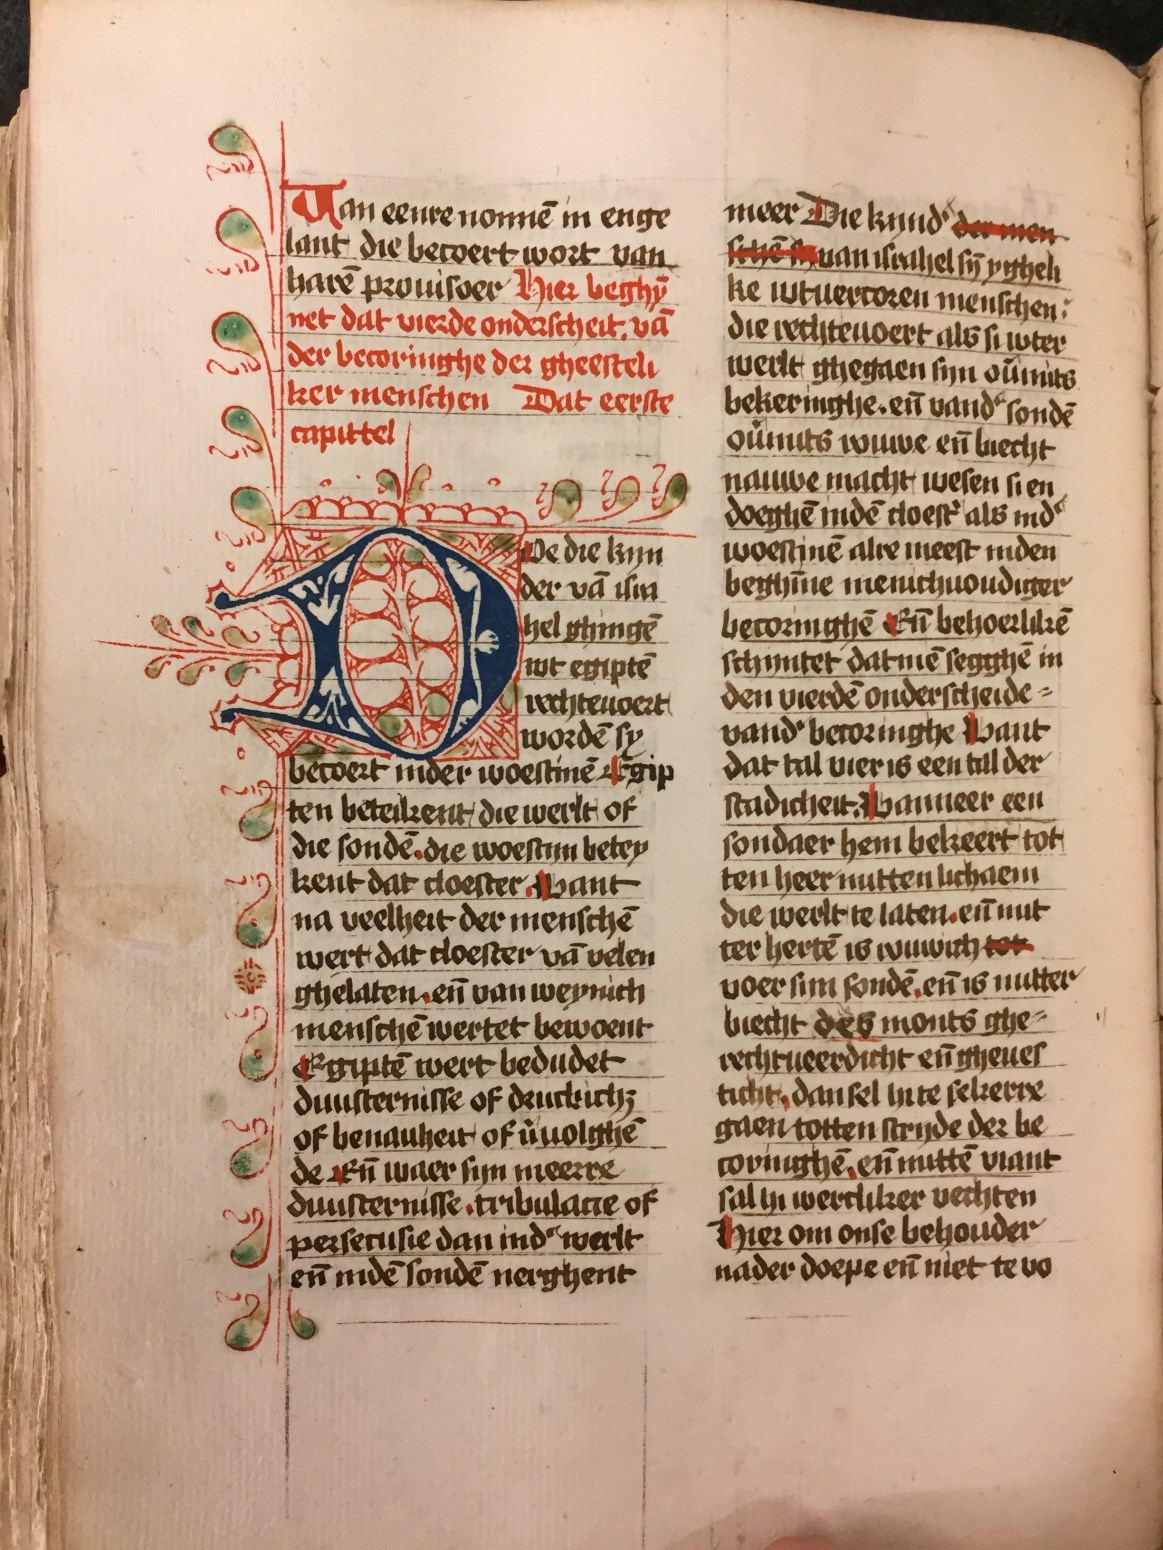 Uan eenre nonnē in enge
lant die becoert wort van
harē prouisoer Hier beghȳ
net dat vierde onderscheit. vā
der becoringhe der gheesteli
ker menschen Dat eerste
capittel
Doe die kyn
der vā isra
hel ghingē
wt egiptē
rechteuoert
wordē sy
becoert inder woestinē Egip
ten beteikent die werlt of
die sondē. die woestijn betey
kent dat cloester. Want
na veelheit der menschē
wert dat cloester vā velen
ghelaten. eñ van weynich
menschē wertet bewoent
Egiptē wert bedudet
duusternisse of
of benauheit of v̄uolghē
de Eñ waer sijn meerre
duusternisse. tribulacie of
persecusie dan ind' werlt
eñ indē sondē nerghent
meer Die kynd' der men
schē van israhel sȳ ygheli
ke wtuercoren menschen:
die rechteuoert als si wter
werlt ghegaen sijn ouͦmits
bekeringhe. eñ vand' sondē
ouͦmits rouwe eñ biecht
nauwe macht wesen si en
doeghē indē cloest' als ind'
woestinē alre meest inden
beghīne menichuoudiger
becoringhē Eñ behoerlikē
schijntet datmē segghē in
den vierdē onderscheide=
vand' becoringhe Want
dat tal vier is een tal der
stadicheit. Wanneer een
sondaer hem bekeert tot
ten heer mitten lichaem
die werlt te laten. eñ mit
ter hertē is rouwich tot
voer sijn sondē. eñ is mitter
biecht des monts ghe=
rechtueerdicht eñ gheues
ticht. dan sel hi te sekerre
gaen totten stryde der be
coringhē. eñ mittē viant
sal hi wercliker vechten
Hier om onse behouder
nader doepe eñ niet te vo